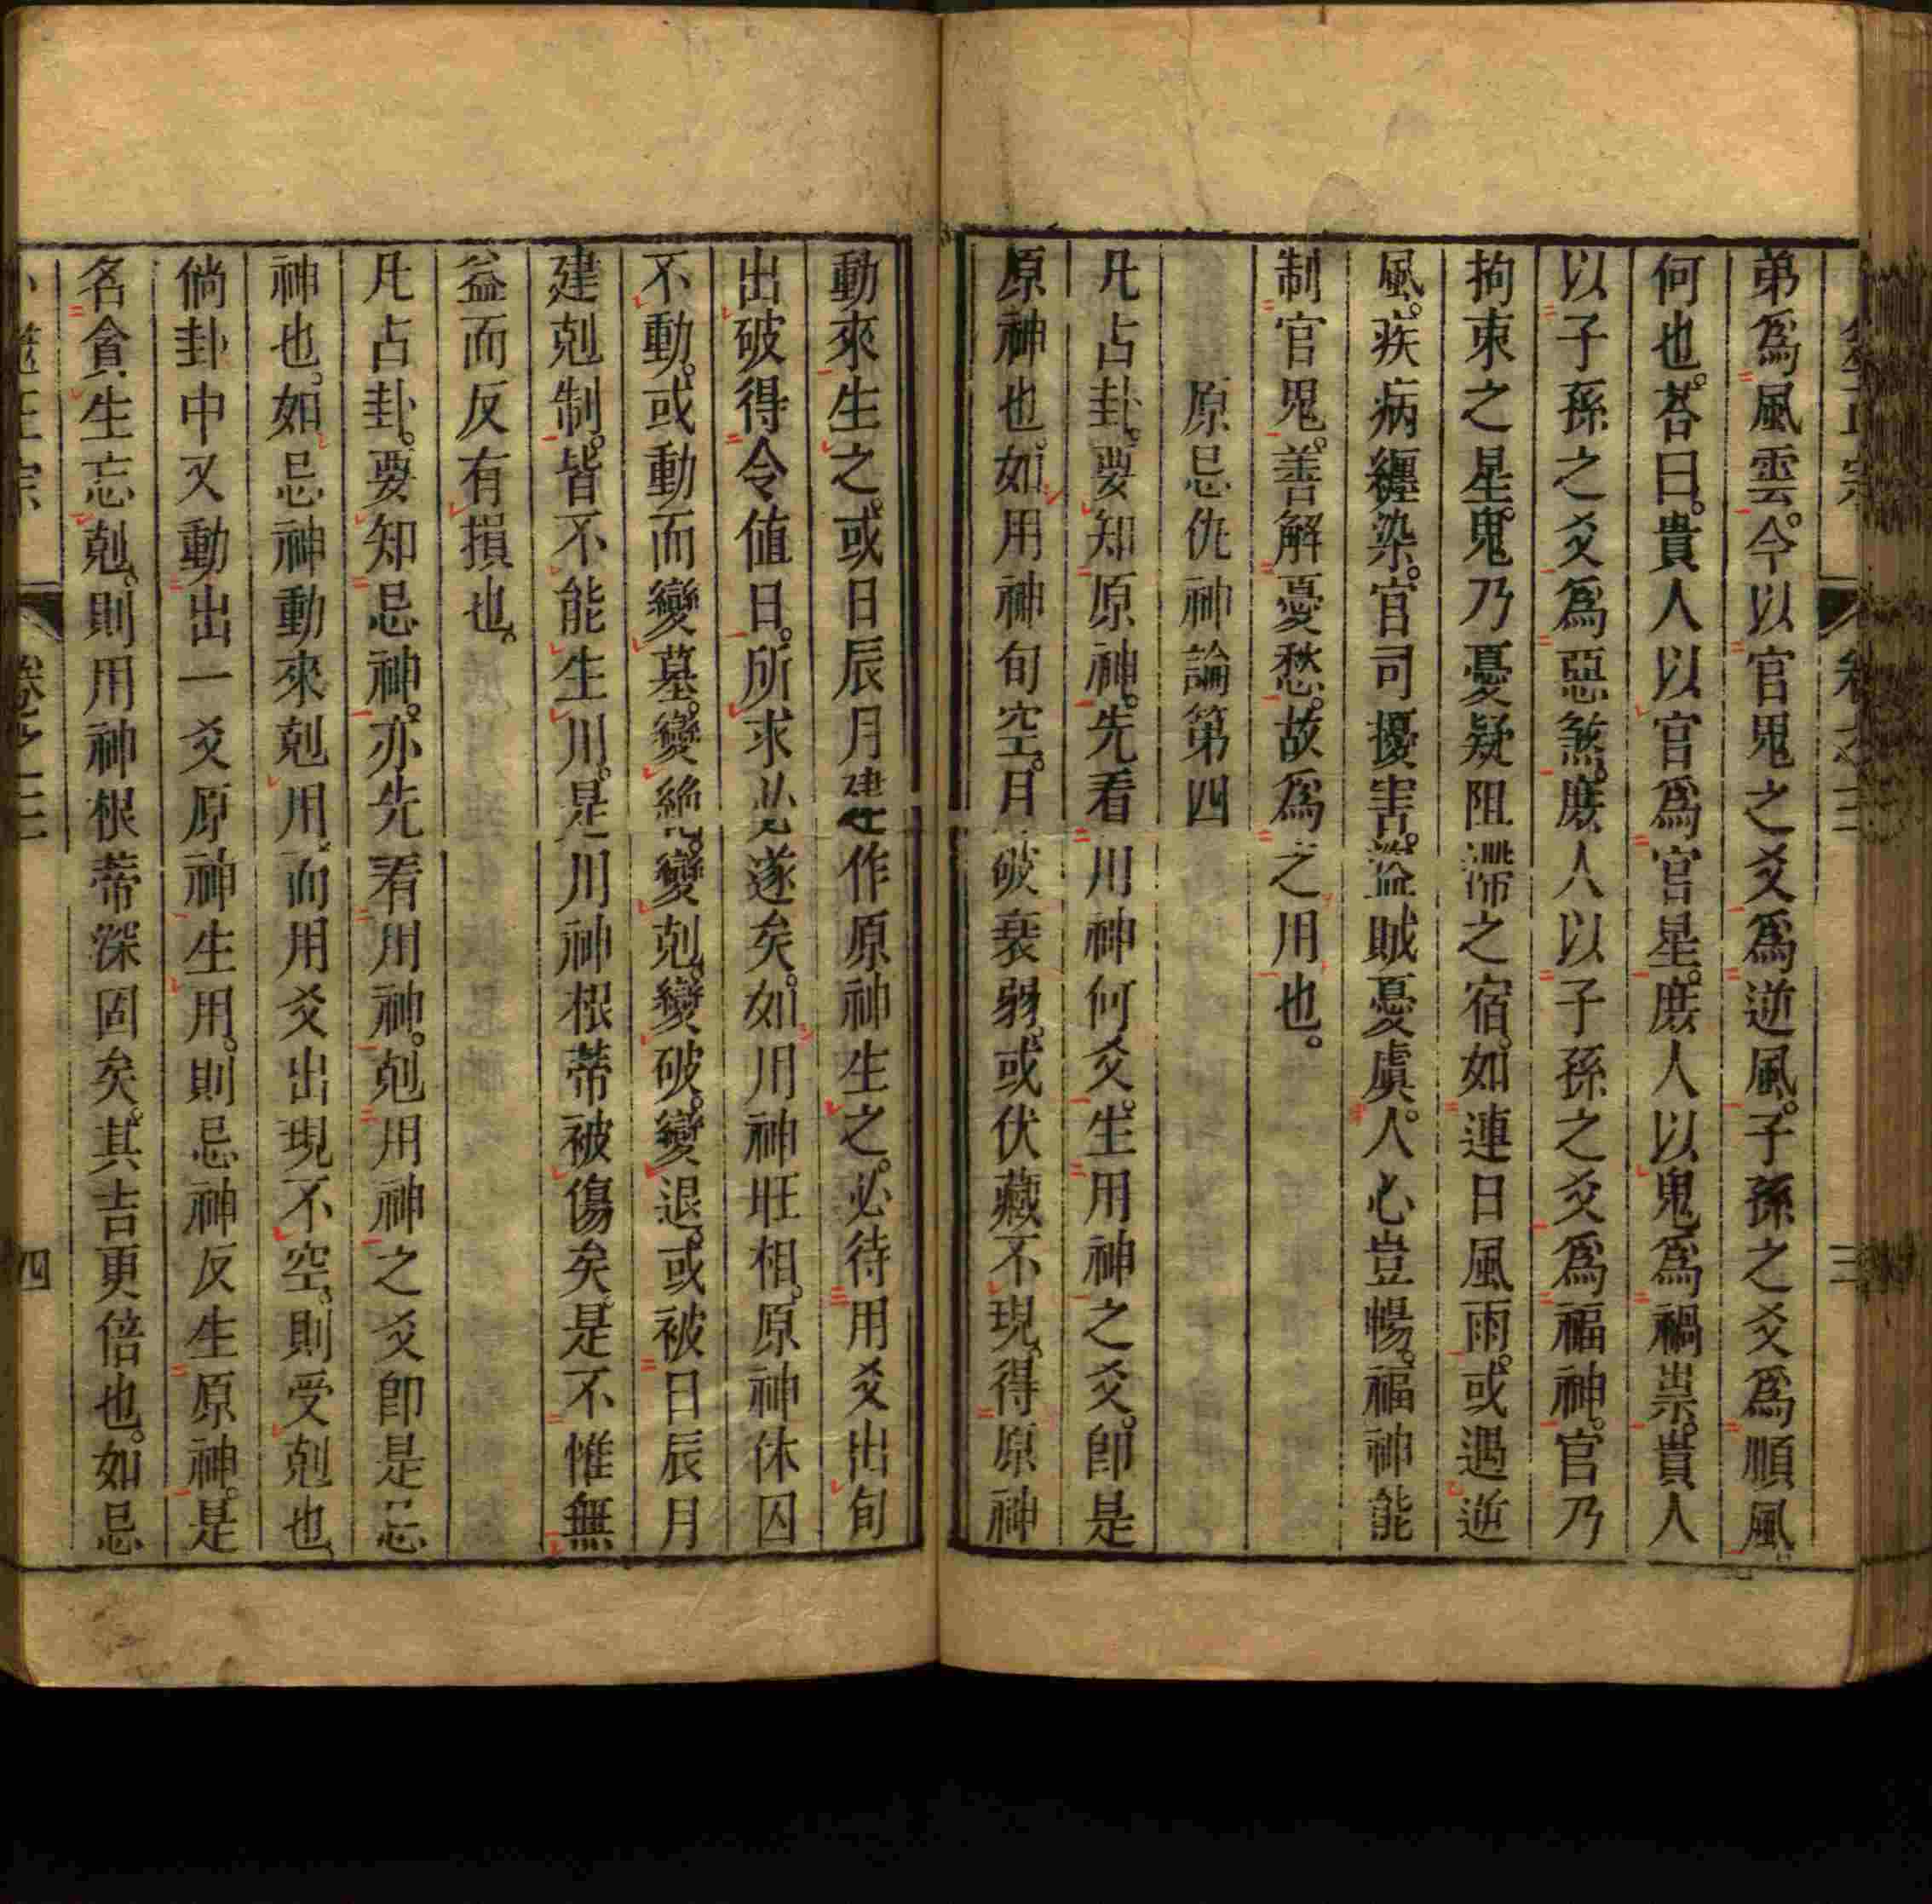 弟爲風雲。今以官鬼之爻爲逆風。子孫之爻爲順風。
何也。荅曰。貴人以官爲官星。庶人以鬼爲禍祟。貴人
以子孫之爻爲惡煞。庶人以子孫之爻爲福神。官乃
拘束之星。鬼乃憂疑阻滯之宿。如連日風雨。或遇逆
風。疾病纏染。官司擾害。盜賊憂虞。人心豈暢。福神能
制官鬼。善解憂愁。故爲之用也。
原忌仇神論第四
凡占卦。要知原神。先看用神何爻。生用神之爻。卽是
原神也。如用神旬空。月破衰弱。或伏藏不現。得原神
動來生之。或日辰月建作原神生之。必待用爻出旬
出破得令值日。所求必遂矣。如用神旺相。原神休囚
不動。或動而變墓。變絶。變剋。變破。變退。或被日辰月
建剋制。皆不能生用。是用神根蒂被傷矣。是不惟無
益而反有損也。
凡占卦。要知忌神。亦先看用神。剋用神之爻卽是忌
神也。如忌神動來剋用。而用爻出現不空。則受剋也。
倘卦中又動出一爻原神生用。則忌神反生原神。是
名貪生忘剋。則用神根蒂深固矣。其吉更倍也。如忌
卜筮正宗 卷之二 四